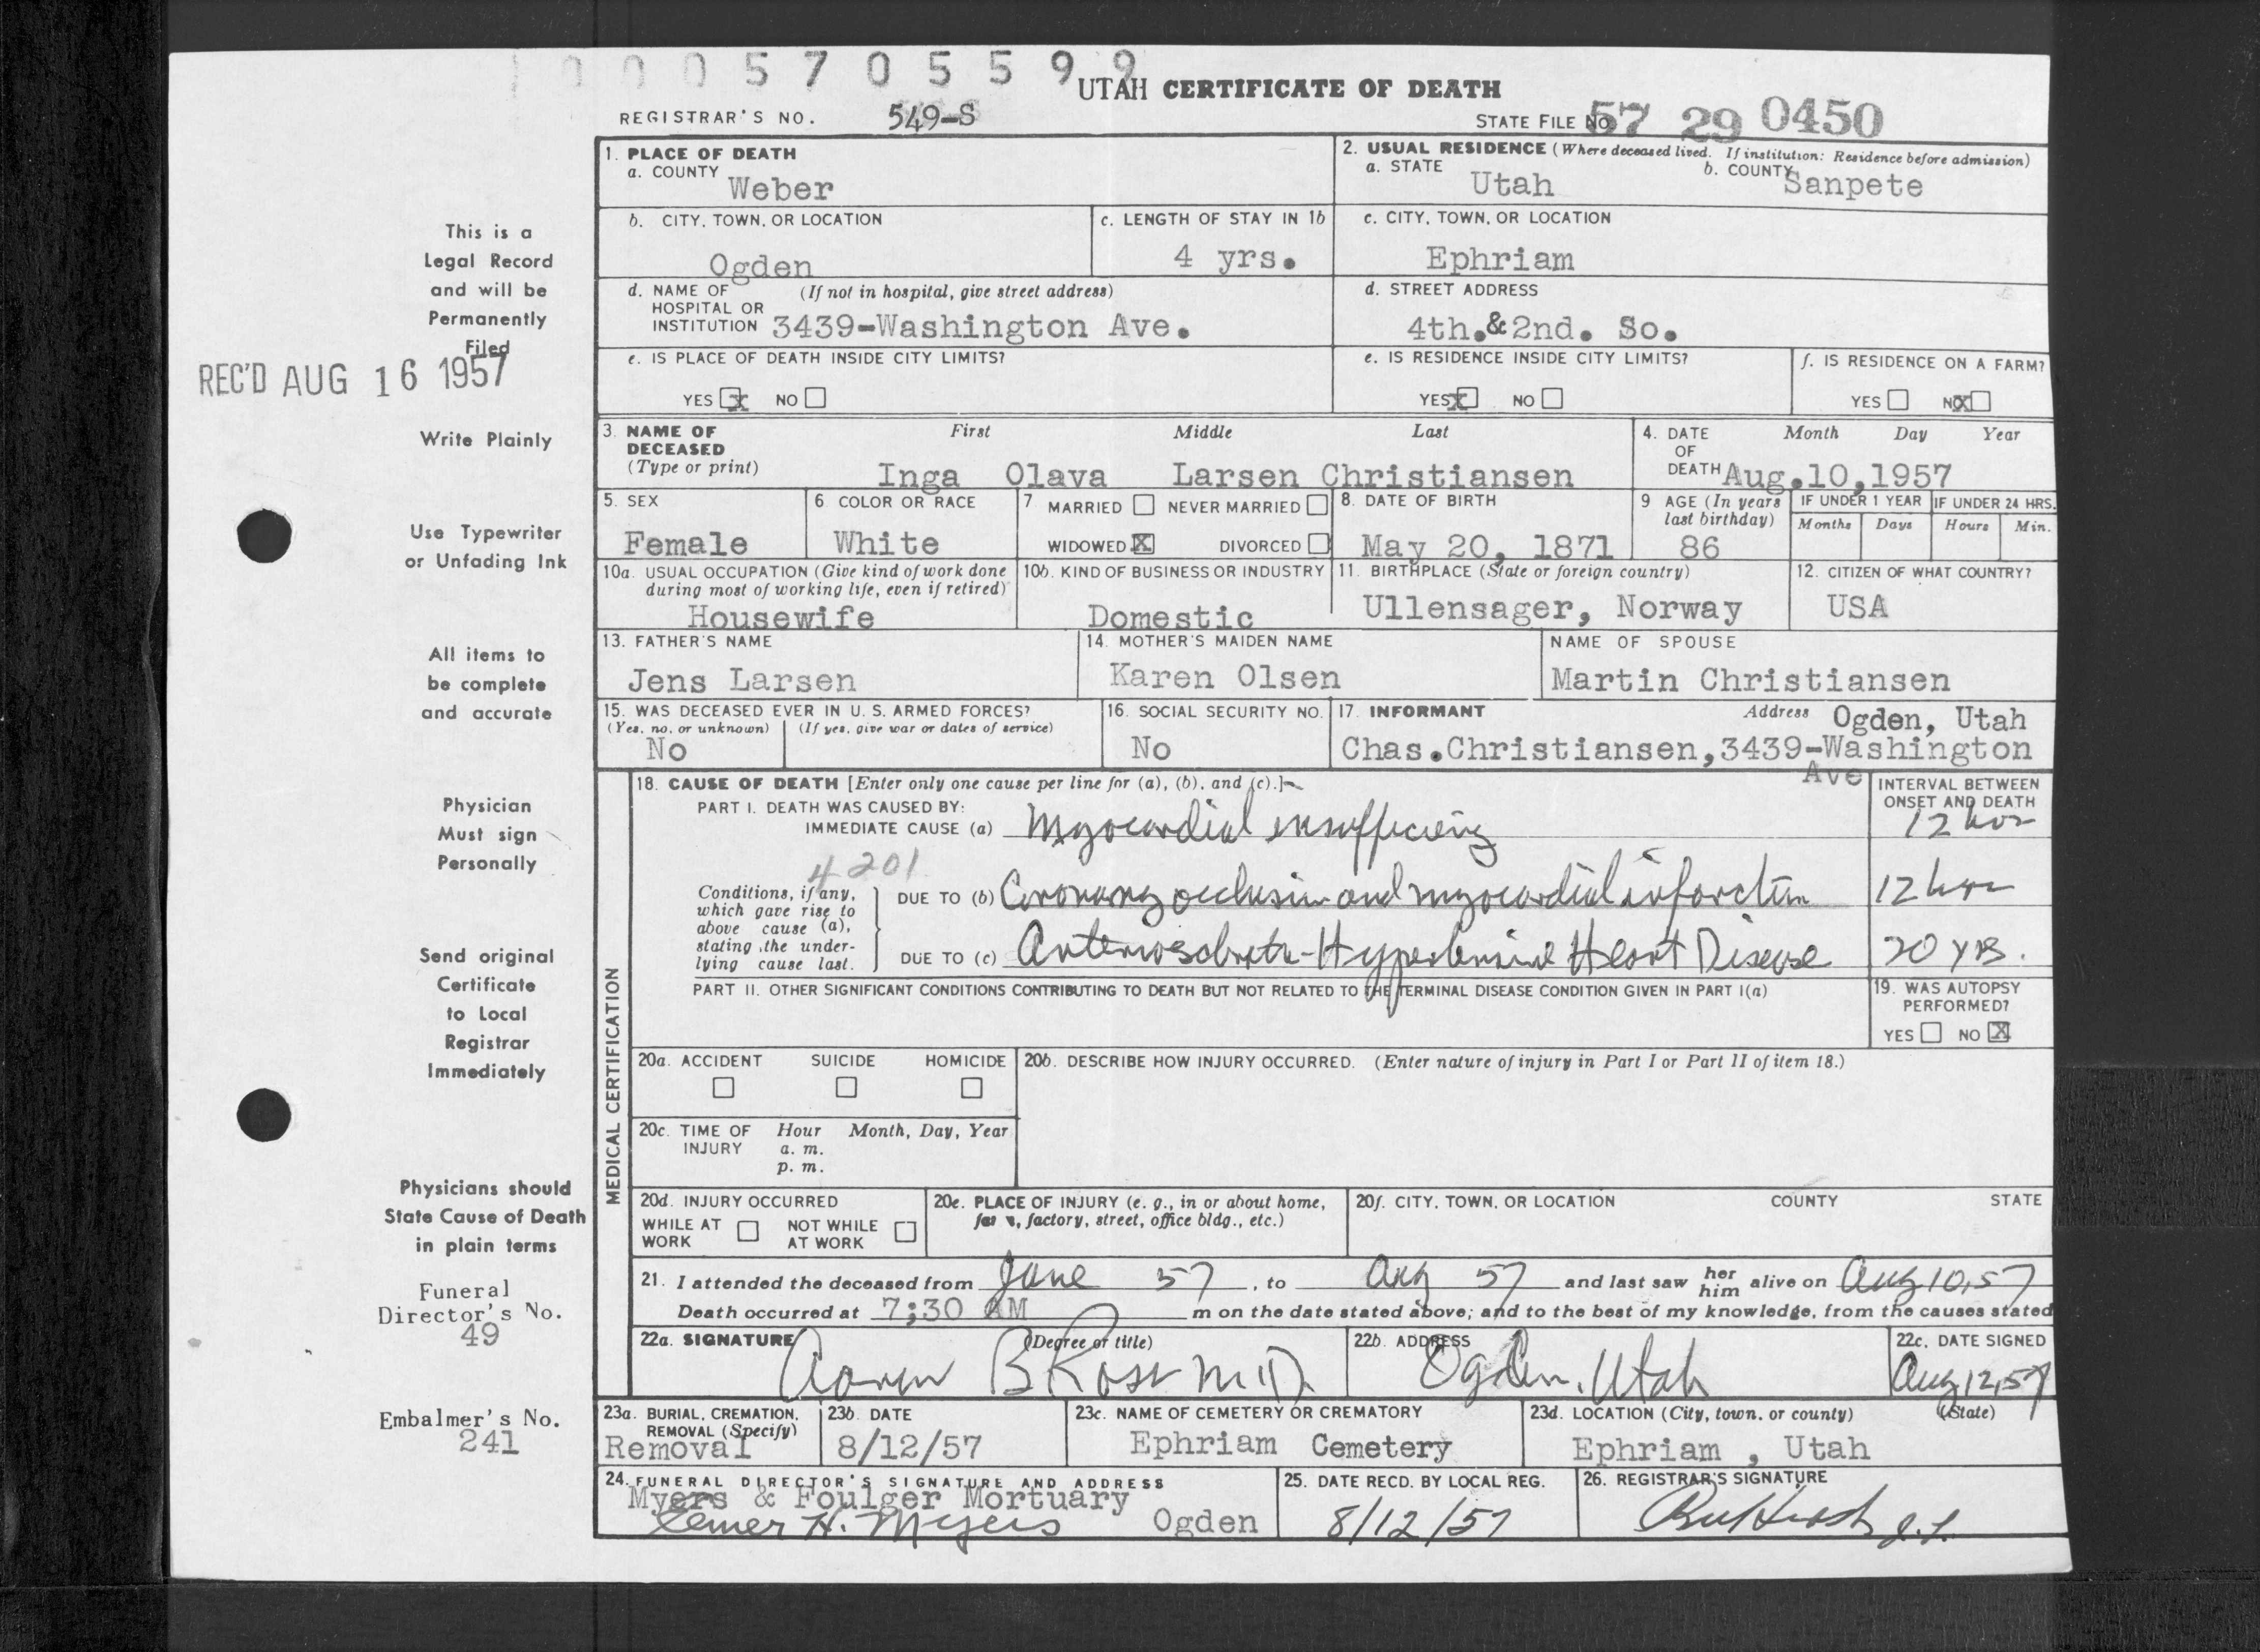 1 0 0 0 5 7 0 5 5 9 9
UTAH CERTIFICATE OF DEATH
REGISTRAR'S NO. 549-S
STATE FILE NO. 57 29 0450
1. PLACE OF DEATH
a. COUNTY
Weber
2. USUAL RESIDENCE (Where deceased lived. If institution: Residence before admission)
a. STATE Utah b. COUNTY Sanpete
b. CITY, TOWN, OR LOCATION
Ogden
c. LENGTH OF STAY IN 1b
4 yrs.
c. CITY, TOWN, OR LOCATION
Ephriam
d. NAME OF (If not in hospital, give street address)
HOSPITAL OR
INSTITUTION 3439-Washington Ave.
d. STREET ADDRESS
4th.&2nd. So.
e. IS PLACE OF DEATH INSIDE CITY LIMITS?
YES X NO
e. IS RESIDENCE INSIDE CITY LIMITS?
YES X NO
f. IS RESIDENCE ON A FARM?
YES NO X
3. NAME OF DECEASED
(Type or print)
First Middle Last
Inga Olava Larsen Christiansen
4. DATE OF DEATH
Month Day Year
Aug.10,1957
5. SEX
Female
6 COLOR OR RACE
White
7 MARRIED NEVER MARRIED
WIDOWED X DIVORCED
8. DATE OF BIRTH
May 20, 1871
9 AGE (In years last birthday)
86
IF UNDER 1 YEAR
Months Days
IF UNDER 24 HRS.
Hours Min.
10a. USUAL OCCUPATION (Give kind of work done
during most of working life, even if retired)
Housewife
10b. KIND OF BUSINESS OR INDUSTRY
Domestic
11. BIRTHPLACE (State or foreign country)
Ullensager, Norway
12. CITIZEN OF WHAT COUNTRY?
USA
13. FATHER'S NAME
Jens Larsen
14. MOTHER'S MAIDEN NAME
Karen Olsen
NAME OF SPOUSE
Martin Christiansen
15. WAS DECEASED EVER IN U. S. ARMED FORCES?
(Yes, no, or unknown) (If yes, give war or dates of service)
No
16. SOCIAL SECURITY NO.
No
17. INFORMANT Address Ogden, Utah
Chas.Christiansen,3439-Washington
Ave
MEDICAL CERTIFICATION
18. CAUSE OF DEATH [Enter only one cause per line for (a), (b), and (c).]
INTERVAL BETWEEN
ONSET AND DEATH
PART I. DEATH WAS CAUSED BY:
IMMEDIATE CAUSE (a) Myocardial insufficiency 12 hrs
4201
Conditions, if any,
which gave rise to
above cause (a),
stating the under-
lying cause last.
DUE TO (b) Coronary occlusion and myocardial infarction 12 hrs
DUE TO (c) Arteriosclerotic-Hypertensive Heart Disease 20 yrs.
PART II. OTHER SIGNIFICANT CONDITIONS CONTRIBUTING TO DEATH BUT NOT RELATED TO THE TERMINAL DISEASE CONDITION GIVEN IN PART I(a)
19. WAS AUTOPSY
PERFORMED?
YES NO X
20a. ACCIDENT SUICIDE HOMICIDE
20b. DESCRIBE HOW INJURY OCCURRED. (Enter nature of injury in Part I or Part II of item 18.)
20c. TIME OF INJURY
Hour Month, Day, Year
a. m.
p. m.
20d. INJURY OCCURRED
WHILE AT WORK NOT WHILE AT WORK
20e. PLACE OF INJURY (e. g., in or about home,
farm, factory, street, office bldg., etc.)
20f. CITY, TOWN, OR LOCATION COUNTY STATE
21. I attended the deceased from June 57, to Aug 57 and last saw her him alive on Aug 10, 57
Death occurred at 7;30 AM m on the date stated above; and to the best of my knowledge, from the causes stated
22a. SIGNATURE (Degree or title)
Aaron B Ross M.D.
22b. ADDRESS
Ogden, Utah
22c. DATE SIGNED
Aug 12, 57
23a. BURIAL, CREMATION,
REMOVAL (Specify)
Removal
23b. DATE
8/12/57
23c. NAME OF CEMETERY OR CREMATORY
Ephriam Cemetery
23d. LOCATION (City, town, or county) (State)
Ephriam , Utah
24. FUNERAL DIRECTOR'S SIGNATURE AND ADDRESS
Myers & Foulger Mortuary
H. Myers Ogden
25. DATE RECD. BY LOCAL REG.
8/12/57
26. REGISTRAR'S SIGNATURE
This is a
Legal Record
and will be
Permanently
Filed
REC'D AUG 16 1957
Write Plainly
Use Typewriter
or Unfading Ink
All items to
be complete
and accurate
Physician
Must sign
Personally
Send original
Certificate
to Local
Registrar
Immediately
Physicians should
State Cause of Death
in plain terms
Funeral
Director's No.
49
Embalmer's No.
241